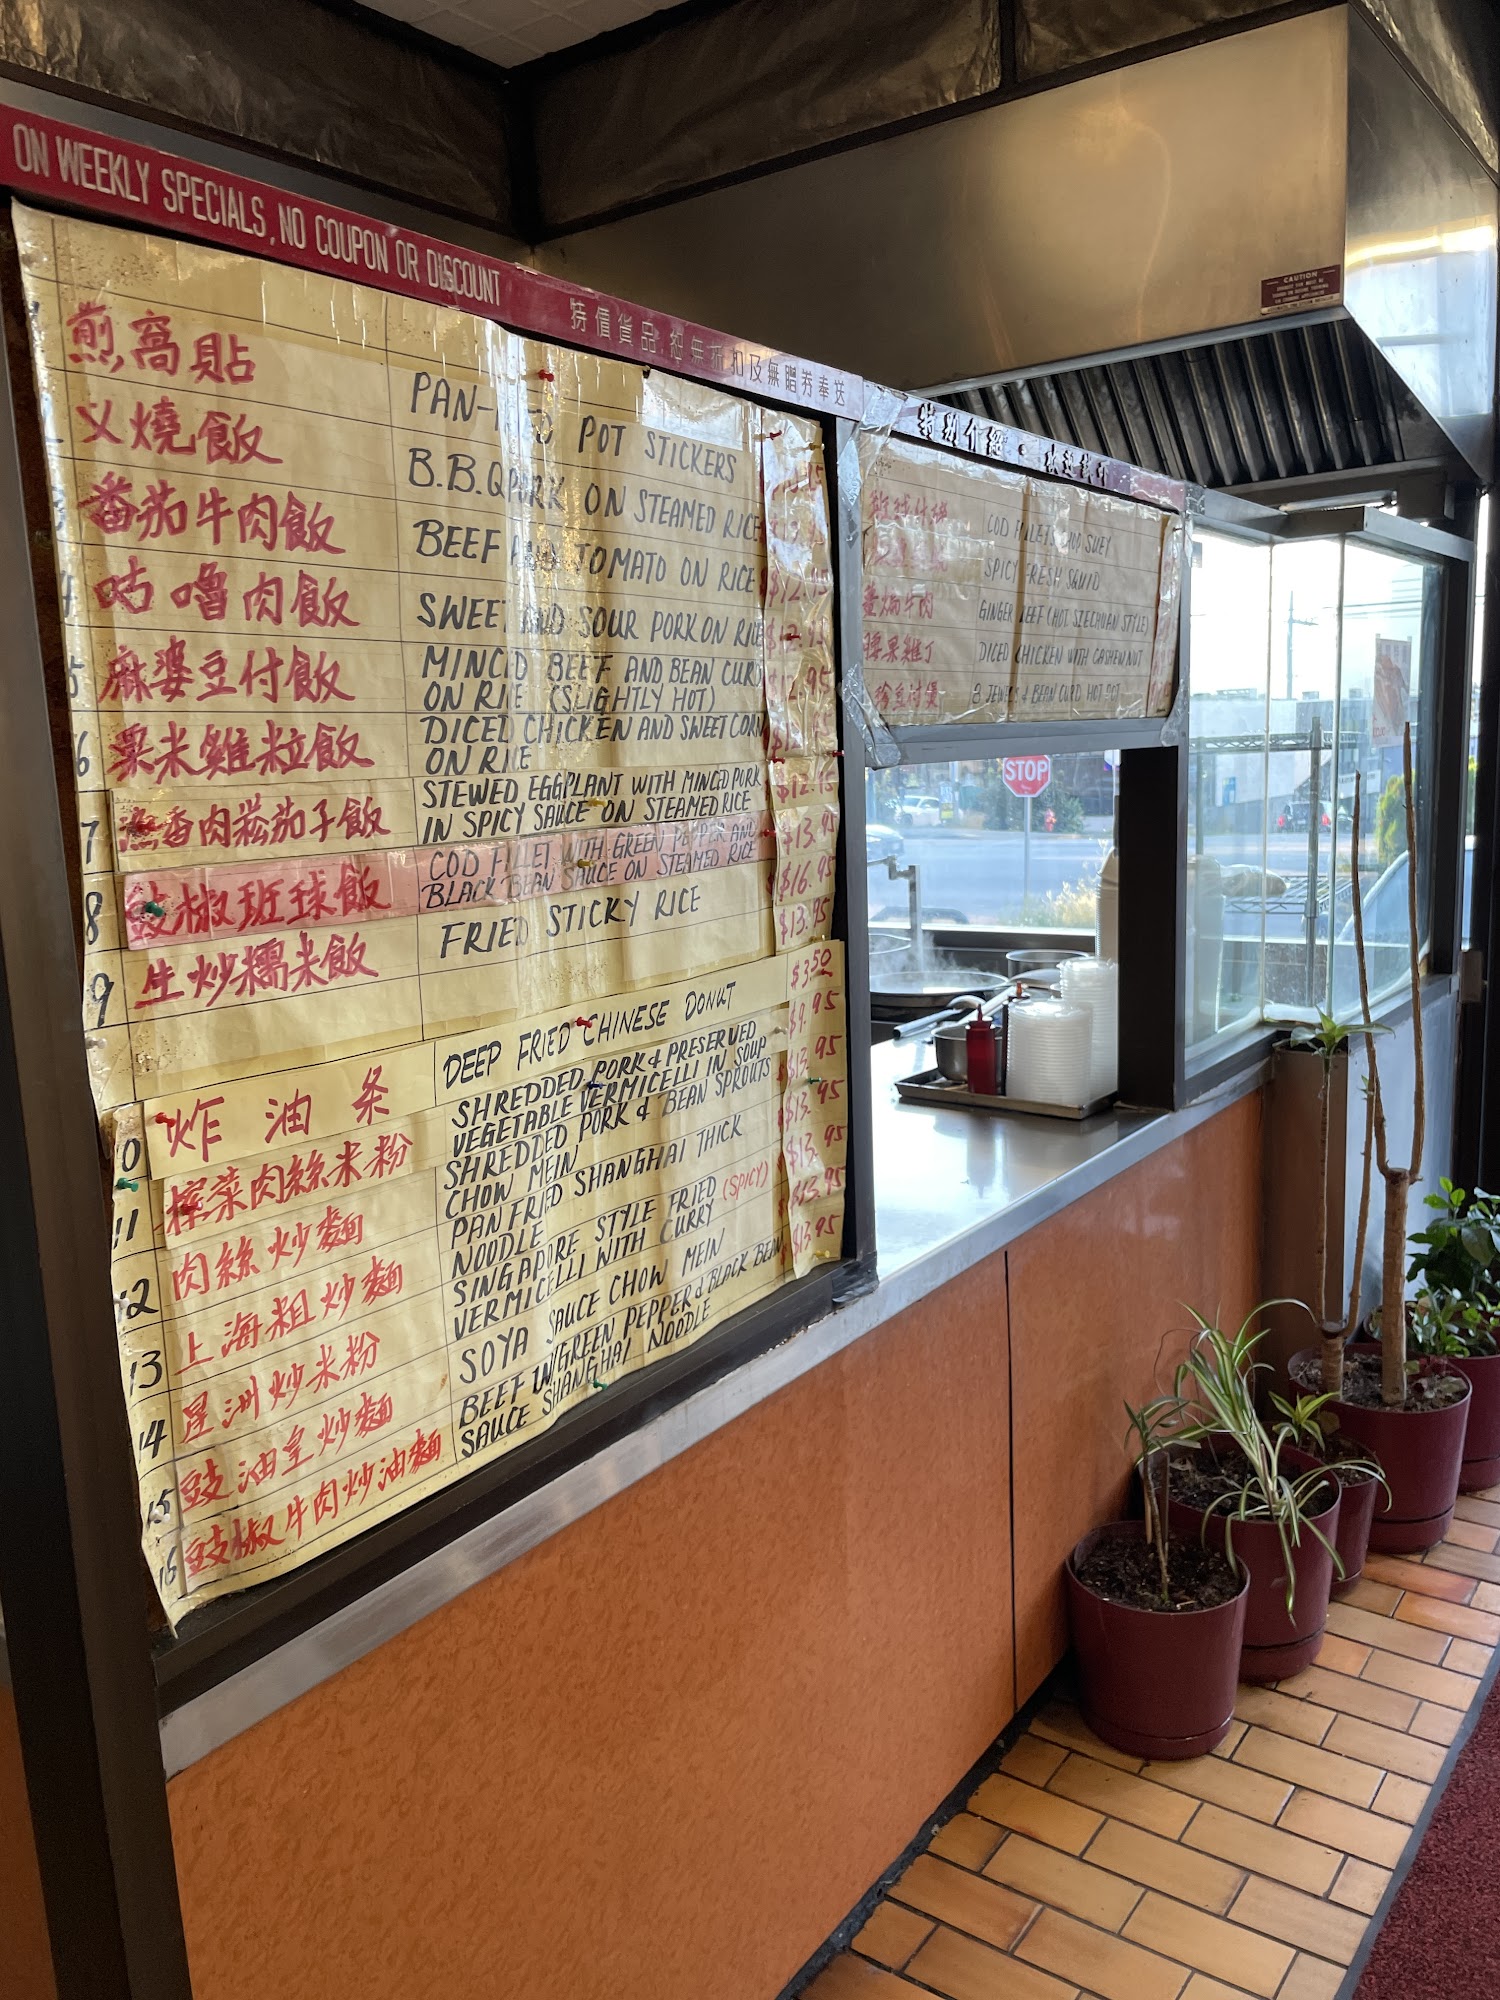 ON WEEKLY SPECIALS, NO COUPON OR DISCOUNT 特價貨品 恕無折扣及無贈券奉送
特別介紹·歡迎試訂
煎窩貼 PAN- POT STICKERS
1
叉燒飯 B.B.Q PORK ON STEAMED RICE
番茄牛肉飯 BEEF AND TOMATO ON RICE $12.95
4 咕嚕肉飯 SWEET AND SOUR PORK ON RICE $12.95
5 麻婆豆付飯 MINCED BEEF AND BEAN CURD $12.95
ON RICE (SLIGHTLY HOT)
6 粟米雞粒飯 DICED CHICKEN AND SWEET CORN
ON RICE
7 魚香肉崧茄子飯 STEWED EGGPLANT WITH MINCED PORK $13.95
IN SPICY SAUCE ON STEAMED RICE
8 豉椒班球飯 COD FILLET WITH GREEN PEPPER AND $16.95
BLACK BEAN SAUCE ON STEAMED RICE
9 生炒糯米飯 FRIED STICKY RICE $13.95
10 炸油条 DEEP FRIED CHINESE DONUT $3.50
11 榨菜肉絲米粉 SHREDDED PORK & PRESERVED $9.95
VEGETABLE VERMICELLI IN SOUP
12 肉絲炒麵 SHREDDED PORK & BEAN SPROUTS $13.95
CHOW MEIN
13 上海粗炒麵 PAN FRIED SHANGHAI THICK $13.95
NOODLE
14 星洲炒米粉 SINGAPORE STYLE FRIED (SPICY) $13.95
VERMICELLI WITH CURRY
15 豉油皇炒麵 SOYA SAUCE CHOW MEIN $13.95
16 豉椒牛肉炒油麵 BEEF W/GREEN PEPPER & BLACK BEAN $13.95
SAUCE SHANGHAI NOODLE
COD FILLETS CHOP SUEY
SPICY FRESH SQUID
牛肉 GINGER BEEF (HOT SZECHUAN STYLE)
腰果雞丁 DICED CHICKEN WITH CASHEW NUT
豆付煲 8 JEWELS & BEAN CURD HOT POT
CAUTION
STOP